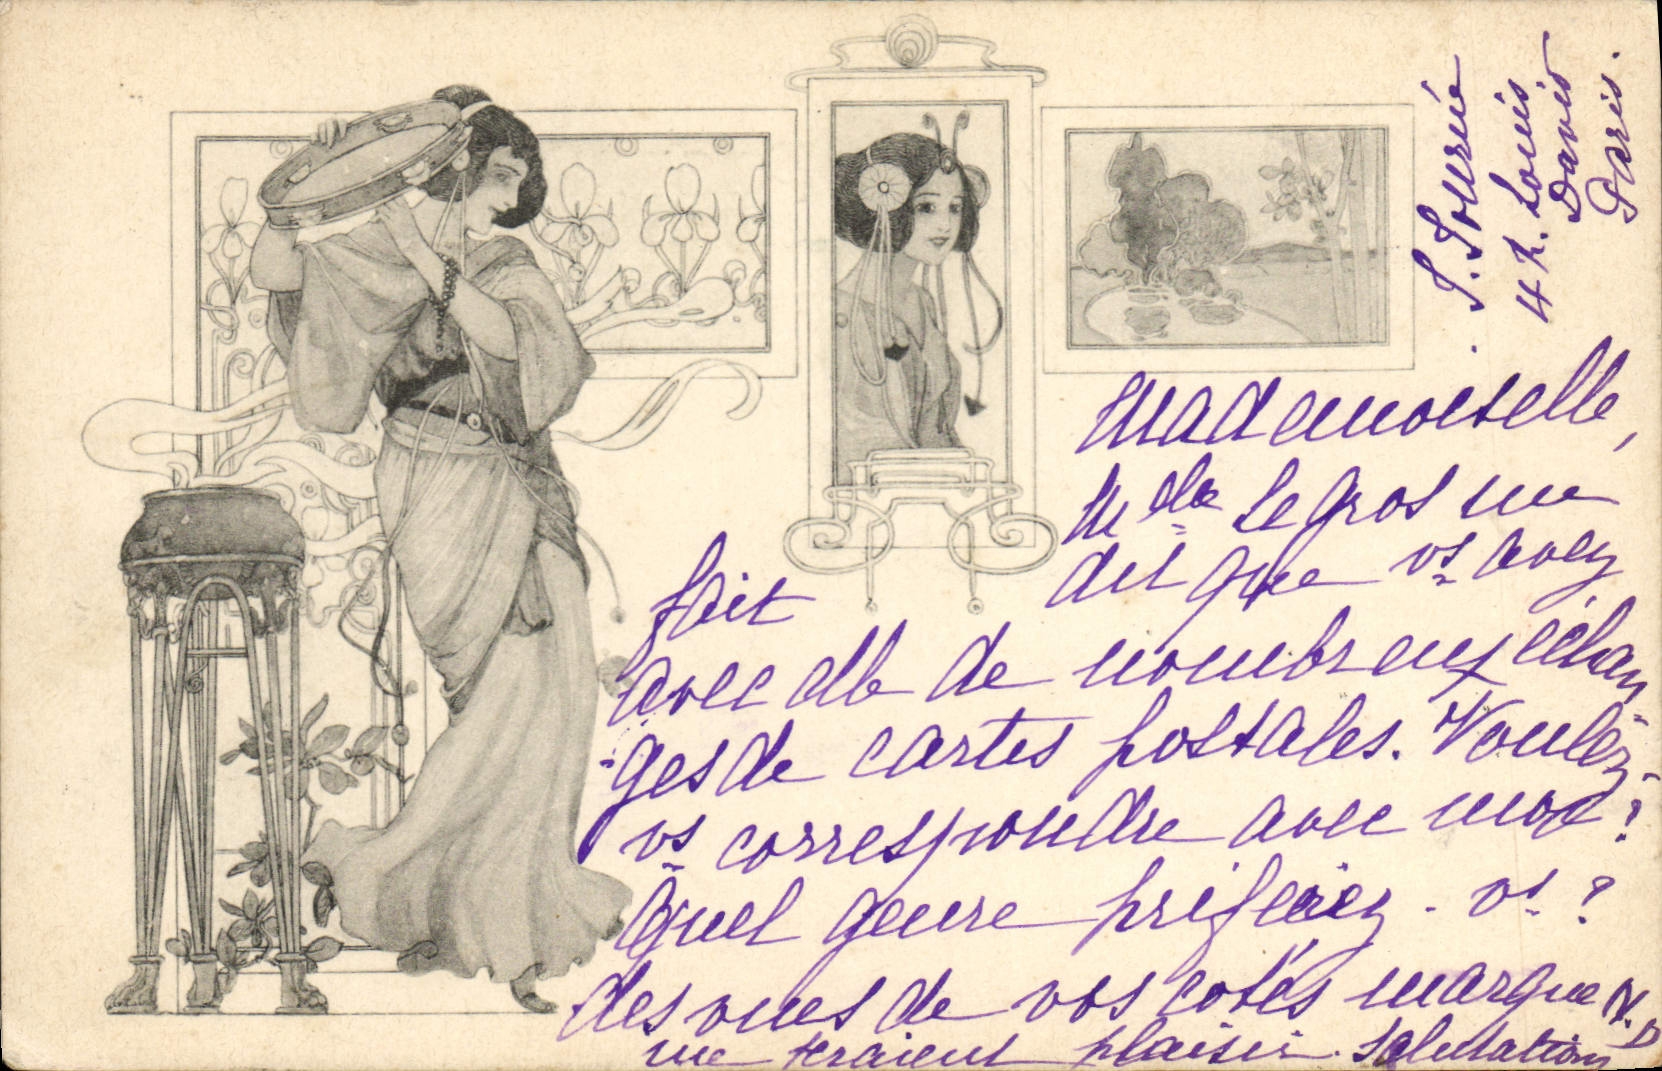 S. Sourié
4 r. Louis
David
Paris.
Mademoiselle,
Mlle Legros me
dit que vs avez
fait
avec elle de nombreux échan
ges de cartes postales. Voulez-
vs correspondre avec moi ?
Quel genre préférez-vs ?
des vues de vos côtés marque N.D
me feraient plaisir. Salutations